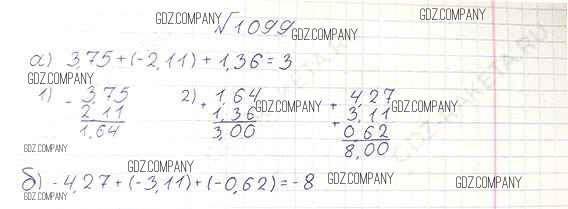 GDZ.COMPANY
№1099
GDZ.COMPANY
а) 3,75 + (-2,11) + 1,36 = 3
GDZ.COMPANY
1) - 3,75
2,11
1,64
2) + 1,64
1,36
3,00
GDZ.COMPANY
+ 4,27
+ 3,11
0,62
8,00
GDZ.COMPANY
GDZ.COMPANY
GDZ.COMPANY
б) -4,27 + (-3,11) + (-0,62) = -8
GDZ.COMPANY
GDZ.COMPANY
GDZ.COMPANY
GDZ-RAKETA.RU